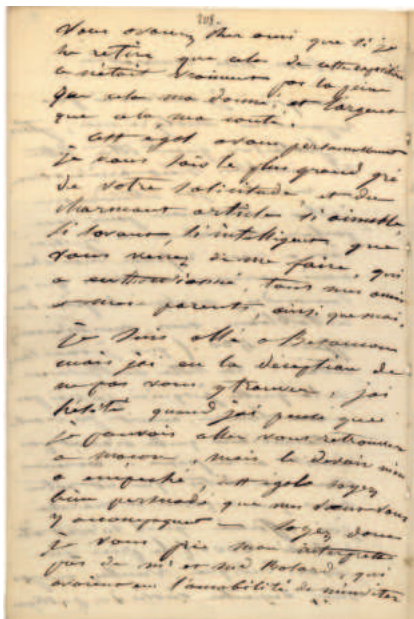 vous avouerez cher ami que si je
ne retire que cela de cette exposition
ce n'était vraiment pas la peine
que cela m'a donné, et l'argent
que cela m'a couté.
cest égal avant personnellement
je vous sais le plus grand gré
de votre solicitude, et du
charmant article si aimable,
si savant, si intelligent que
vous venez de me faire, qui
a enthousiasmé, tous mes amis
et mes parents, ainsi que moi.
Je suis allé a Besancon
mais jai eu la déception de
ne pas vous y trouver, jai
hésité quand jai pensé que
je pouvais aller vous retrouver
a macon, mais le devoir m'en
a empeché, cest égal soyez
bien persuadé que mes vœux vous
y accompagnent — soyez donc
je vous prie mon interprete
près de mr et me , qui
avaient eu l'amabilité de m'inviter